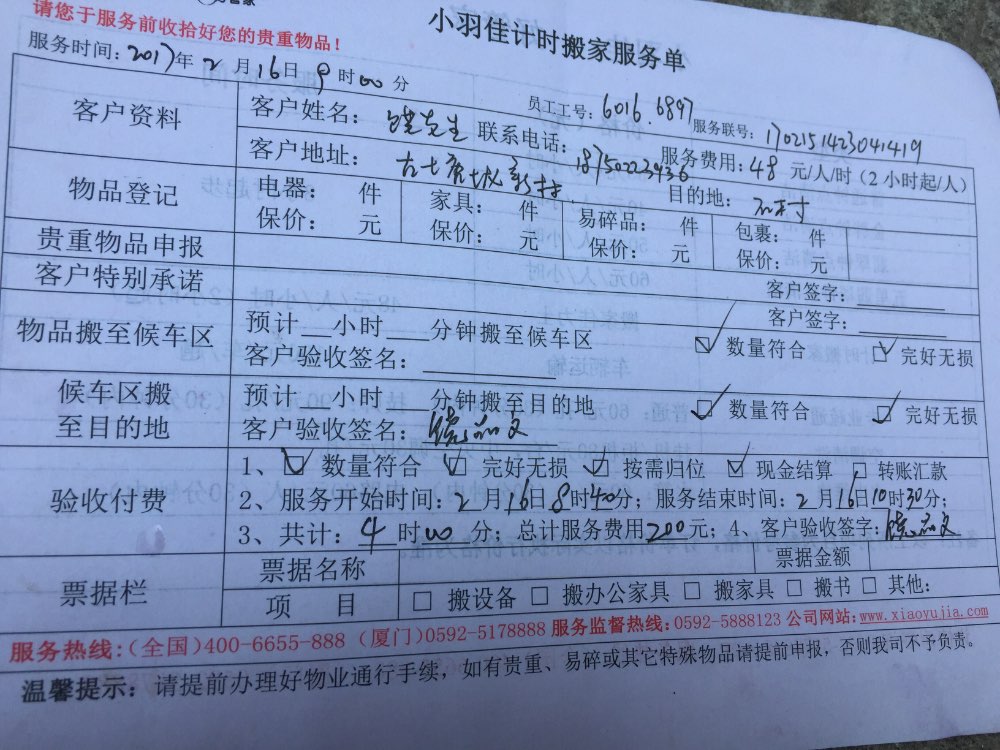 管家
请您于服务前收拾好您的贵重物品！
小羽佳计时搬家服务单
服务时间：2017年2月16日9时00分
员工工号：6016.6897
服务联号：1702151423041419
客户资料
客户姓名：先生 联系电话：18750223436 服务费用：48元/人/时（2小时起/人）
客户地址： 目的地：
物品登记
电器： 件 家具： 件 易碎品： 件 包裹： 件
保价： 元 保价： 元 保价： 元 保价： 元
贵重物品申报
客户签字：
客户特别承诺
客户签字：
物品搬至候车区
预计 小时 分钟搬至候车区 ☑ 数量符合 ☑ 完好无损
客户验收签名：
候车区搬至目的地
预计 小时 分钟搬至目的地 ☑ 数量符合 ☑ 完好无损
客户验收签名：
验收付费
1、☑ 数量符合 ☑ 完好无损 ☑ 按需归位 ☑ 现金结算 □ 转账汇款
2、服务开始时间：2月16日8时40分；服务结束时间：2月16日10时30分；
3、共计：4时00分；总计服务费用200元；4、客户验收签字：
票据栏
票据名称 票据金额
项 目 □ 搬设备 □ 搬办公家具 □ 搬家具 □ 搬书 □ 其他：
服务热线：（全国）400-6655-888（厦门）0592-5178888 服务监督热线：0592-5888123 公司网站：www.xiaoyujia.com
温馨提示：请提前办理好物业通行手续，如有贵重、易碎或其它特殊物品请提前申报，否则我司不予负责。